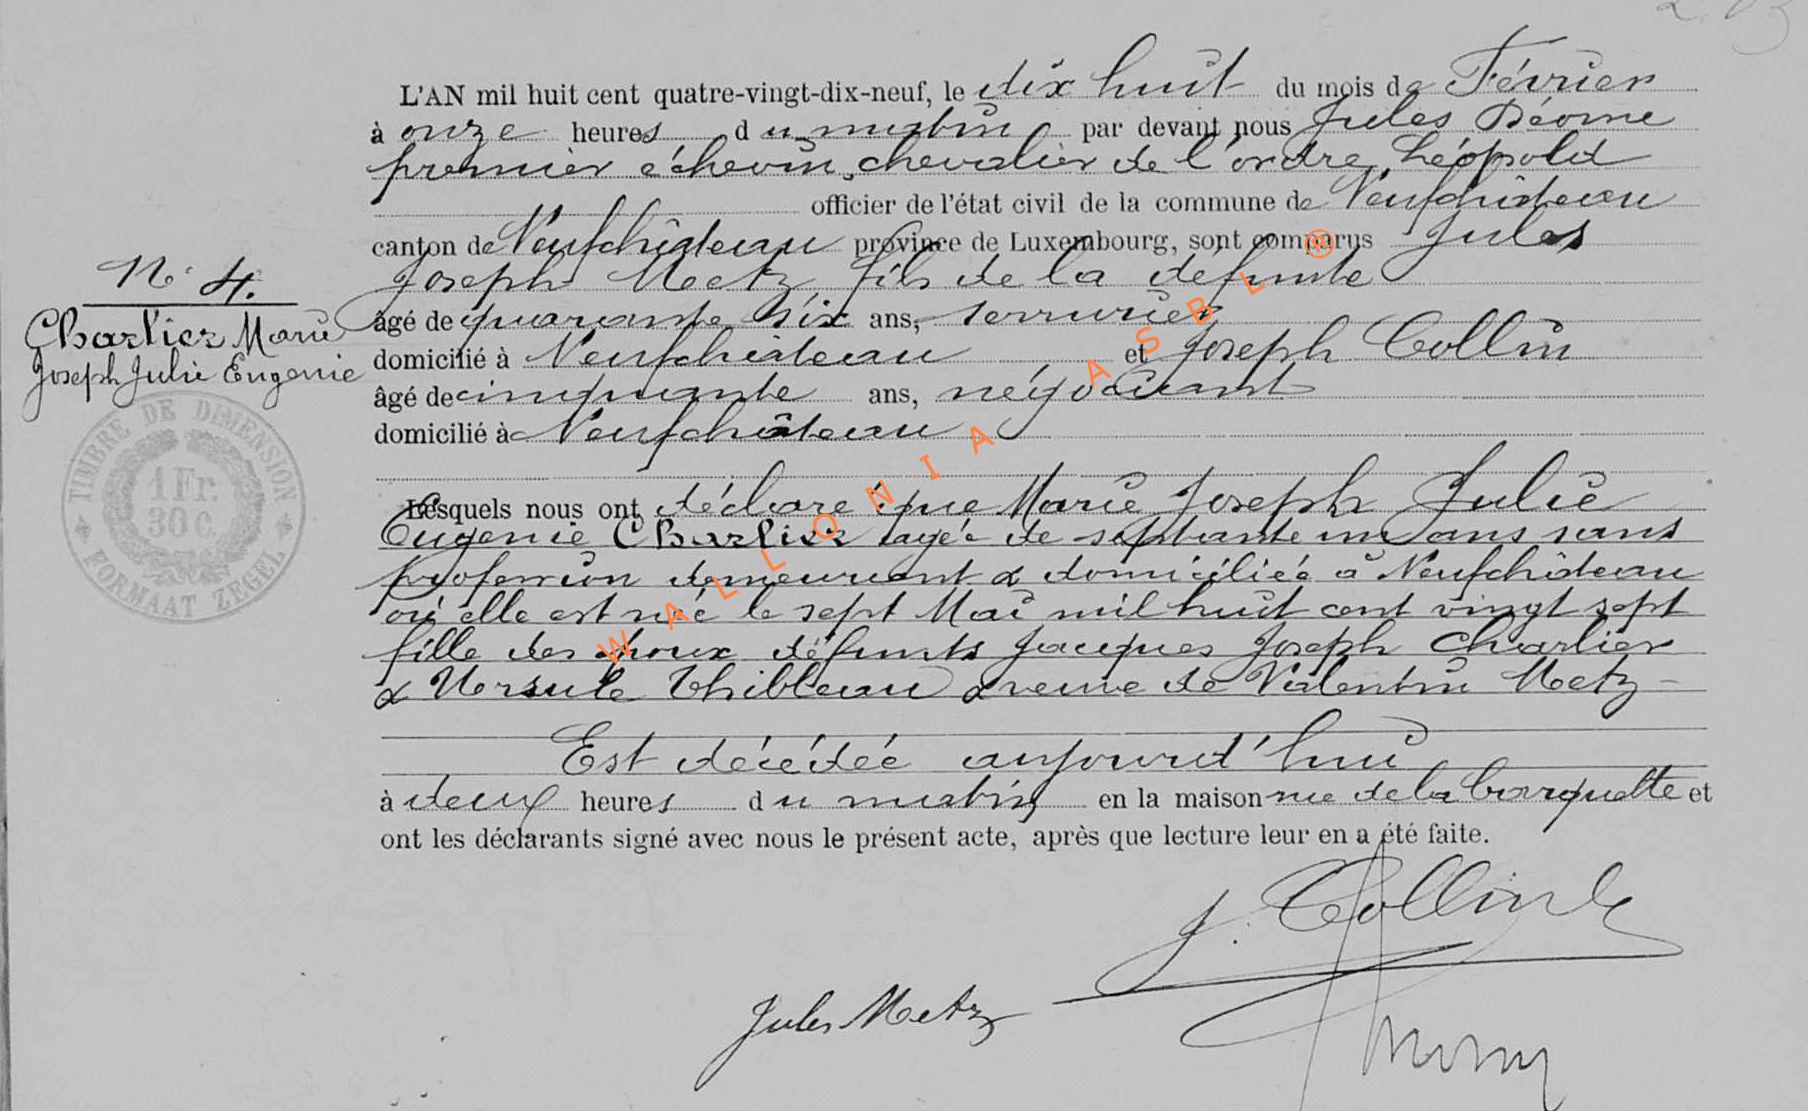 L'AN mil huit cent quatre-vingt-dix-neuf, le dix huit du mois de Février
à onze heures du matin par devant nous Jules
premier échevin, chevalier de l'ordre Léopold
officier de l'état civil de la commune de Neufchâteau
canton de Neufchâteau province de Luxembourg, sont comparus Jules
Joseph Metz fils de la défunte
âgé de quarante six ans, serrurier
domicilié à Neufchâteau et Joseph Collin
âgé de cinquante ans, négociant
domicilié à Neufchâteau
Lesquels nous ont déclaré que Marie Joseph Julie
Eugenie Charlier agée de septante un ans sans
profession demeurant & domiciliée à Neufchâteau
où elle est née le sept Mai mil huit cent vingt sept
fille des époux défunts Jacques Joseph Charlier
& Ursule Thibleau & veuve de Valentin Metz
Est décédée aujourd'hui
à deux heures du matin en la maison rue de la barquette et
ont les déclarants signé avec nous le présent acte, après que lecture leur en a été faite.
J. Collin
Jules Metz
N° 4.
Charlier Marie
Joseph Julie Eugenie
TIMBRE DE DIMENSION
1 Fr.
30 C.
FORMAAT ZEGEL
WALLONIA ASBL ®